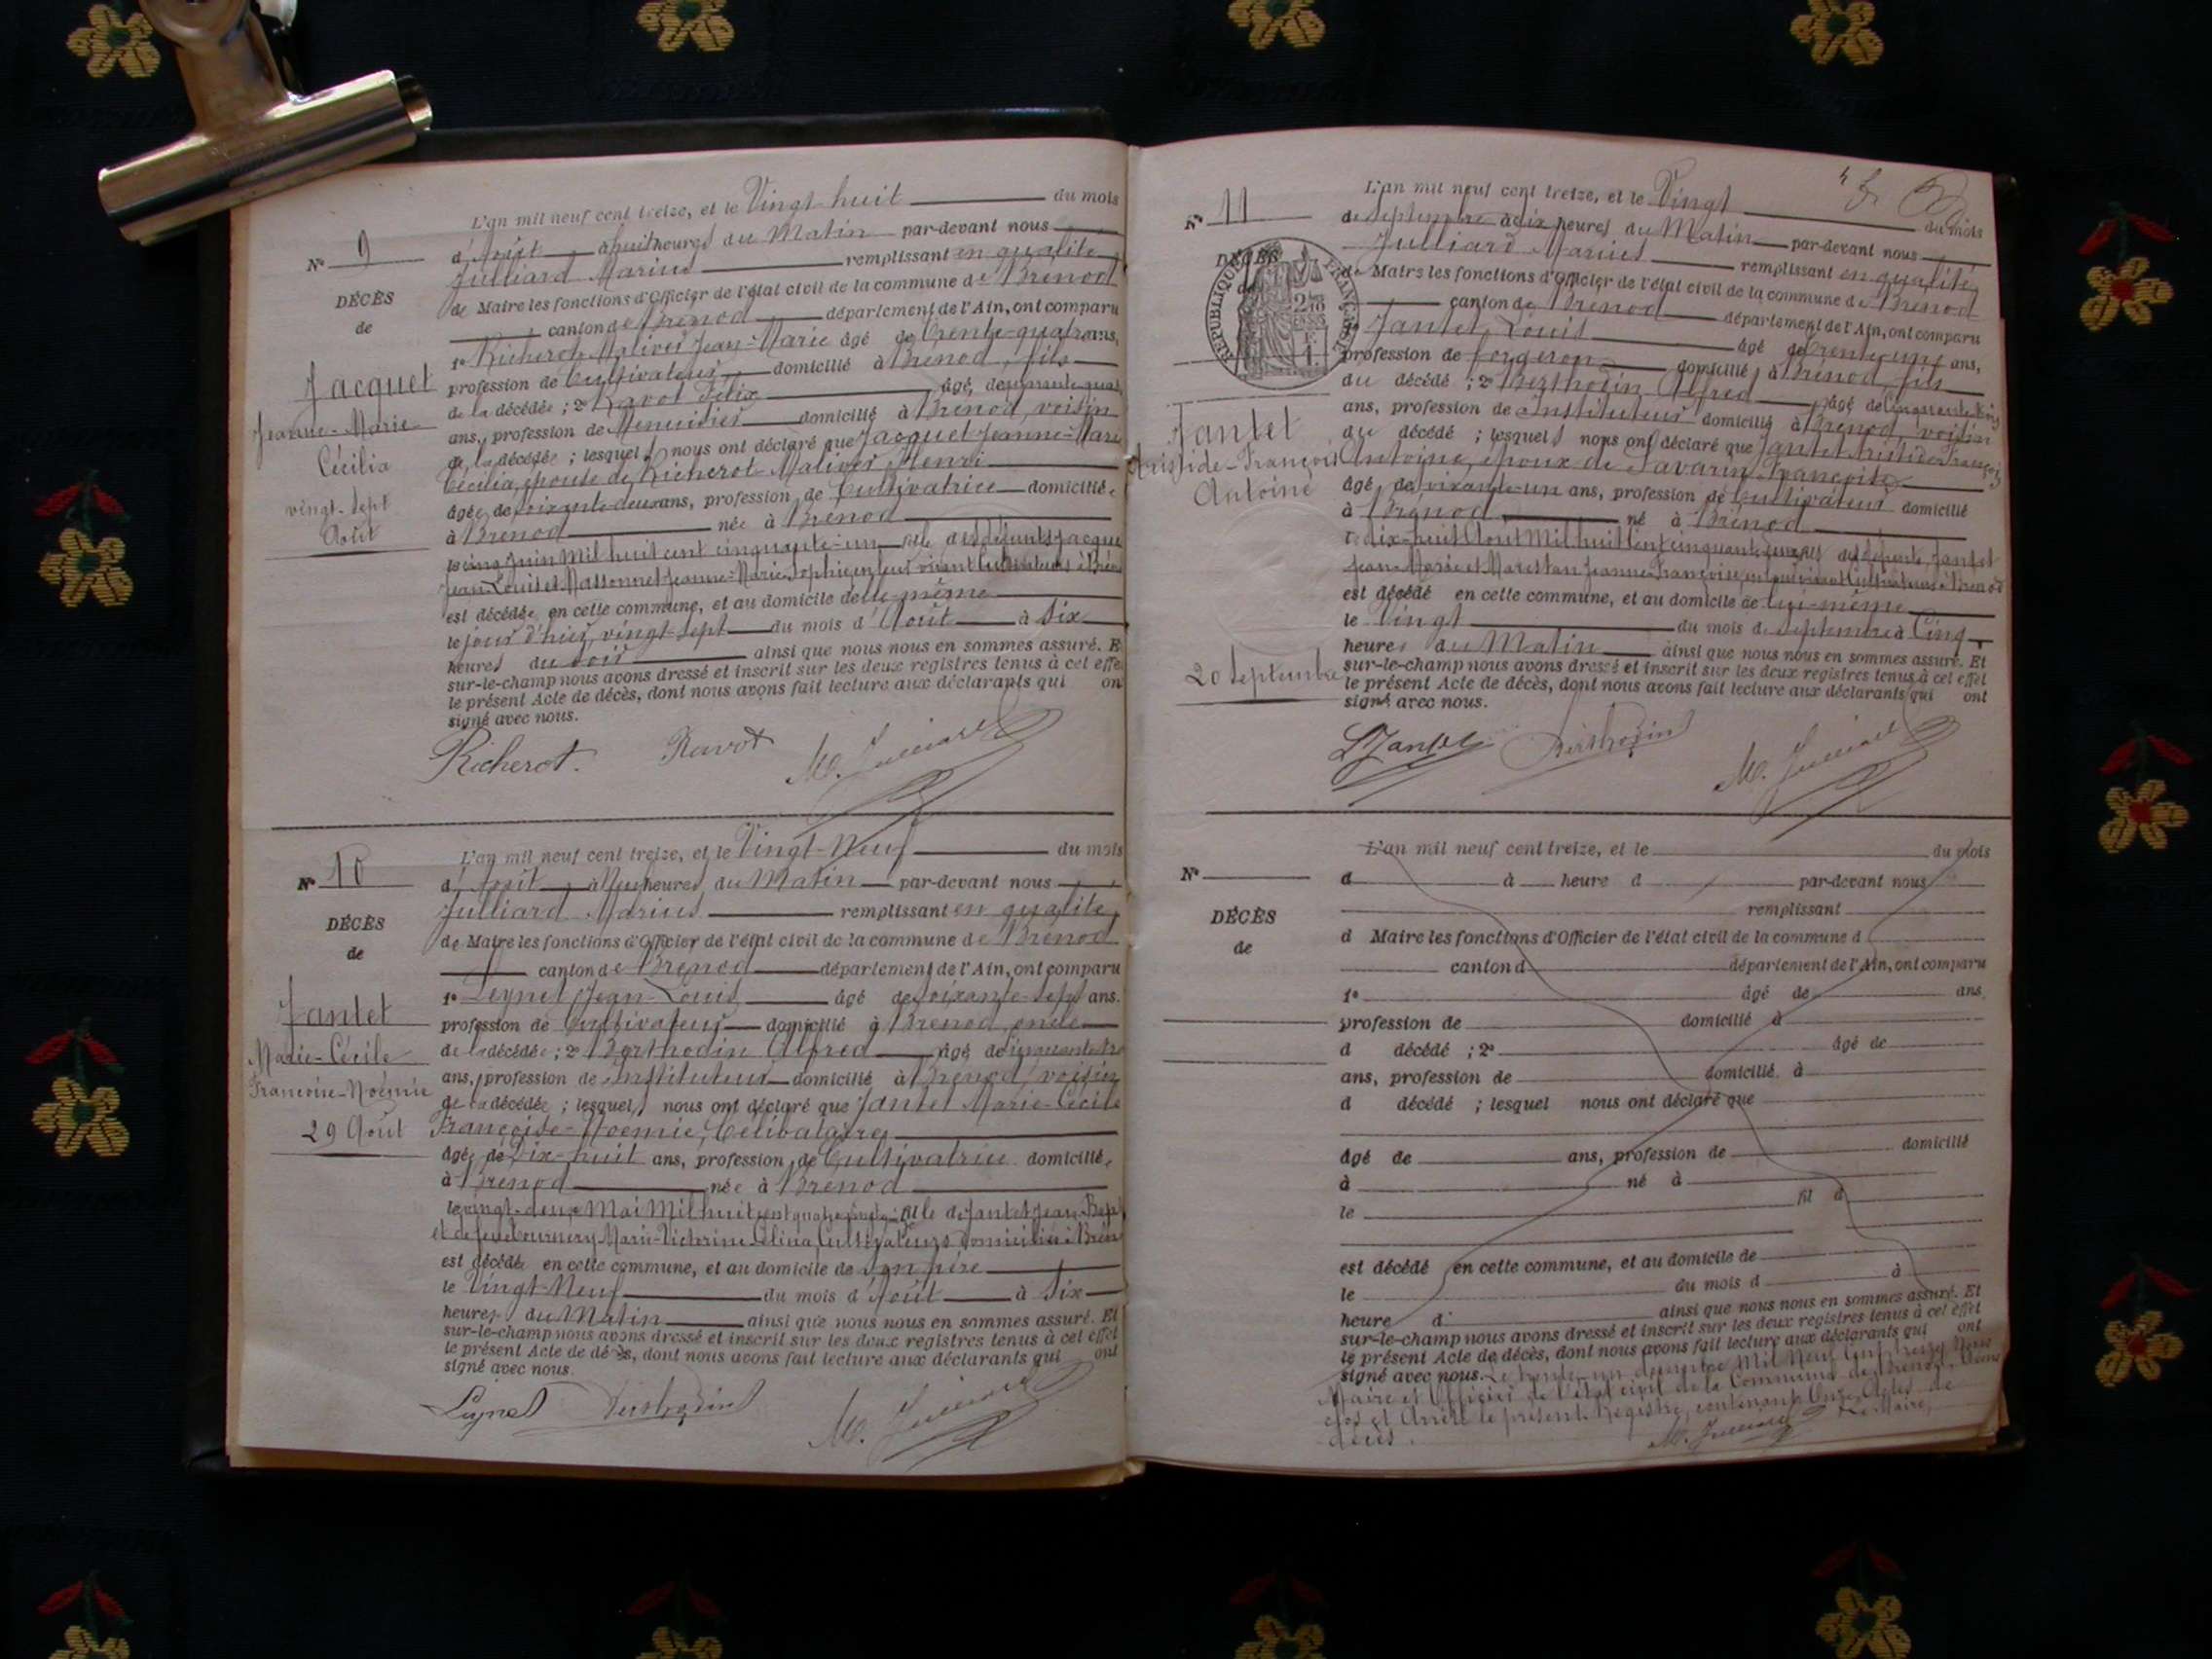 N° 9
DÉCÈS
de
Jacquet
Jeanne-Marie
Cécilia
vingt-sept
Août
L'an mil neuf cent treize, et le Vingt huit du mois
d'Août à huit heures du Matin par-devant nous
Julliard Marius remplissant en qualité
de Maire les fonctions d'Officier de l'état civil de la commune de Brénod
canton de Brénod département de l'Ain, ont comparu
1° Richerot-Malivès Jean-Marie âgé de Trente-quatre ans,
profession de Cultivateur domicilié à Brénod, fils
de la décédée ; 2° Ravot Félix âgé de
ans, profession de Menuisier domicilié à Brénod, voisin
de la décédée ; lesquels nous ont déclaré que Jacquet Jeanne-Marie
Cécilia, épouse de Richerot-Malivès Henri
âgée de soixante-deux ans, profession de Cultivatrice domiciliée
à Brénod née à Brénod
le cinq Juin Mil huit cent cinquante-un fille des défunts Jacquet
Jean-Louis et Massonnet Jeanne-Marie Sophie en leur vivant Cultivateurs à
est décédée en cette commune, et au domicile de elle-même
le jour d'hier, vingt-sept du mois d'Août à Six
heures du Soir ainsi que nous nous en sommes assuré. E
sur-le-champ nous avons dressé et inscrit sur les deux registres tenus à cet effe
le présent Acte de décès, dont nous avons fait lecture aux déclarants qui on
signé avec nous.
Richerot. Ravot M. Julliard
N° 10
DÉCÈS
de
Jantet
Marie-Cécile
Françoise-Noémie
29 Août
L'an mil neuf cent treize, et le Vingt-Neuf du mois
d'Août à Neuf heures du Matin par-devant nous
Julliard Marius remplissant en qualité
de Maire les fonctions d'Officier de l'état civil de la commune de Brénod
canton de Brénod département de l'Ain, ont comparu
1° Leynet Jean-Louis âgé de soixante-sept ans.
profession de Cultivateur domicilié à Brénod, oncle
de la décédée ; 2° Berthodin Alfred âgé de
ans, profession de Instituteur domicilié à Brénod, voisin
de la décédée ; lesquels nous ont déclaré que Jantet Marie-Cécile
Françoise-Noémie, Célibataire
âgée de Dix-huit ans, profession de Cultivatrice domiciliée
à Brénod née à Brénod
le vingt-deux Mai Mil huit cent fille de Jantet Jean-Bapt
et de Marie-Victorine-Célina, Cultivateurs domiciliés à
est décédée en cette commune, et au domicile de son père
le Vingt-Neuf du mois d'Août à Six
heures du Matin ainsi que nous nous en sommes assuré. Et
sur-le-champ nous avons dressé et inscrit sur les deux registres tenus à cet effet
le présent Acte de décès, dont nous avons fait lecture aux déclarants qui ont
signé avec nous.
Leynet Berthodin M. Julliard
N° 11
DÉCÈS
de
RÉPUBLIQUE FRANÇAISE
Jantet
Aristide-François
Antoine
20 Septembre
L'an mil neuf cent treize, et le Vingt du mois
de Septembre à dix heures du Matin par-devant nous
Julliard Marius remplissant en qualité
de Maire les fonctions d'Officier de l'état civil de la commune de Brénod
canton de Brénod département de l'Ain, ont comparu
Jantet Louis âgé de trente-un ans,
profession de forgeron domicilié à Brénod, fils
du décédé ; 2° Berthodin Alfred âgé de
ans, profession de Instituteur domicilié à Brénod, voisin
du décédé ; lesquels nous ont déclaré que Jantet Aristide-François
Antoine, époux de Savarin Françoise
âgé de soixante-un ans, profession de Cultivateur domicilié
à Brénod né à Brénod
le dix-huit Août Mil huit cent cinquante fils des défunts Jantet
Jean-Marie et Jeanne-Françoise, en leur vivant Cultivateurs à Brénod
est décédé en cette commune, et au domicile de lui-même
le Vingt du mois de Septembre à Cinq
heures du Matin ainsi que nous nous en sommes assuré. Et
sur-le-champ nous avons dressé et inscrit sur les deux registres tenus à cet effet
le présent Acte de décès, dont nous avons fait lecture aux déclarants qui ont
signé avec nous.
L Jantet Berthodin M. Julliard
N°
DÉCÈS
de
L'an mil neuf cent treize, et le du mois
d à heure d par-devant nous
remplissant
d Maire les fonctions d'Officier de l'état civil de la commune d
canton d département de l'Ain, ont comparu
1° âgé de ans,
profession de domicilié à
d décédé ; 2° âgé de
ans, profession de domicilié à
d décédé ; lesquel nous ont déclaré que
âgé de ans, profession de domicilié
à né à
le fil d
est décédé en cette commune, et au domicile de
le du mois d à
heure d ainsi que nous nous en sommes assuré. Et
sur-le-champ nous avons dressé et inscrit sur les deux registres tenus à cet effet
le présent Acte de décès, dont nous avons fait lecture aux déclarants qui ont
signé avec nous. Le trente-un décembre Mil Neuf Cent treize, Nous
Maire et Officier de l'état civil de la Commune de Brénod, avons
clos et Arrêté le présent Registre, contenant Onze Actes de
décès. M. Julliard Le Maire,